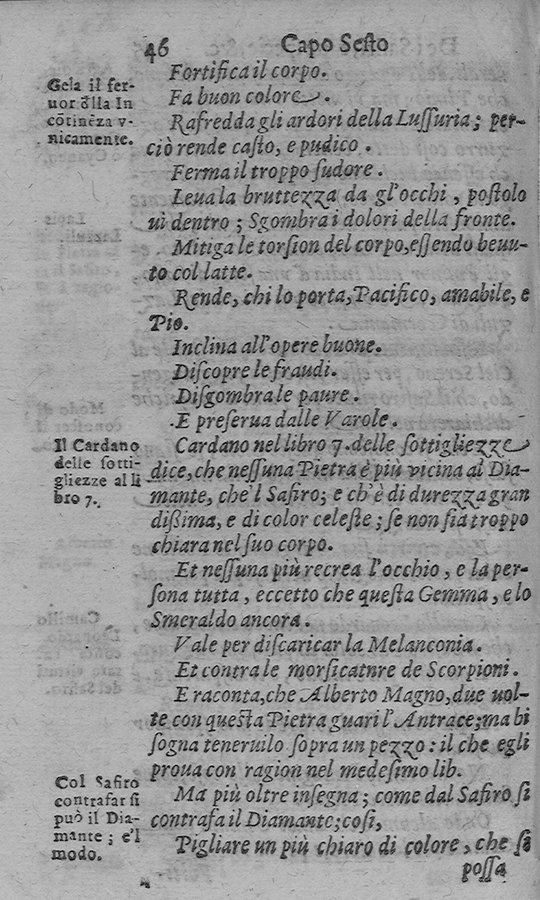 46 Capo Sesto
Gela il fer-
uor dlla In
cõtinẽza v-
nicamente.
Fortifica il corpo.
Fa buon colore.
Rafredda gli ardori della Lussuria; per-
ciò rende casto, e pudico.
Ferma il troppo sudore.
Leua la bruttezza da gl'occhi, postolo
uì dentro; Sgombra i dolori della fronte.
Mitiga le torsion del corpo, essendo beuu-
to col latte.
Rende, chi lo porta, Pacifico, amabile, e
Pio.
Inclina all'opere buone.
Discopre le fraudi.
Disgombra le paure.
E preserua dalle Varole.
Il Cardano
delle sotti-
gliezze al li
bro 7.
Cardano nel libro 7. delle sottigliezze
dice, che nessuna Pietra è più vicina al Dia-
mante, che'l Safiro; e ch'è di durezza gran
dißima, e di color celeste; se non sia troppo
chiara nel suo corpo.
Et nessuna più recrea l'occhio, e la per-
sona tutta, eccetto che questa Gemma, e lo
Smeraldo ancora.
Vale per discaricar la Melanconia.
Et contra le morsicatnre de Scorpioni.
E raconta, che Alberto Magno, due uol-
te con questa Pietra guari l'Antrace; ma bi
sogna teneruilo sopra un pezzo: il che egli
proua con ragion nel medesimo lib.
Col Safiro
contrafar si
può il Dia-
mante; e'l
modo.
Ma più oltre insegna; come dal Safiro si
contrafa il Diamante; così,
Pigliare un più chiaro di colore, che si
possa